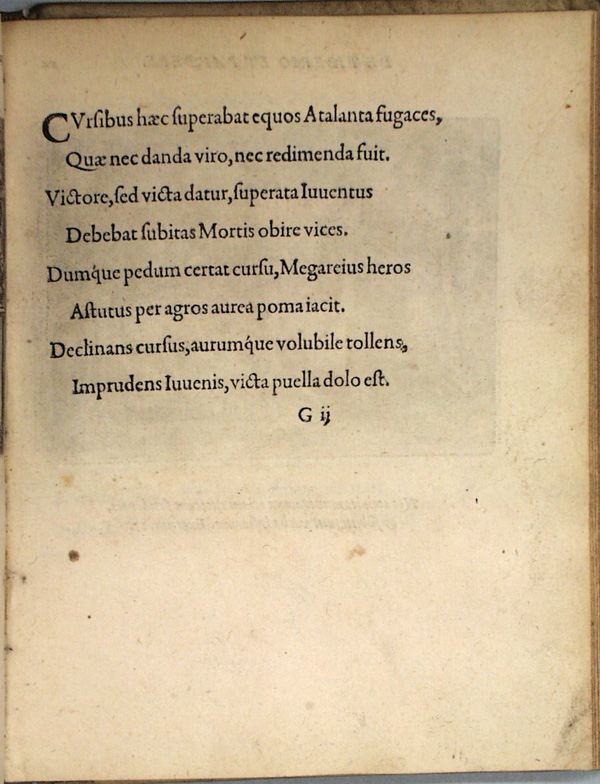 CVrſibus hæc ſuperabat equos Atalanta fugaces,
Quæ nec danda viro, nec redimenda fuit.
Victore, ſed victa datur, ſuperata Iuuentus
Debebat ſubitas Mortis obire vices.
Dumq́ue pedum certat curſu, Megareius heros
Aſtutus per agros aurea poma iacit.
Declinans curſus, aurumq́ue volubile tollens,
Imprudens Iuuenis, victa puella dolo eſt.
G ij